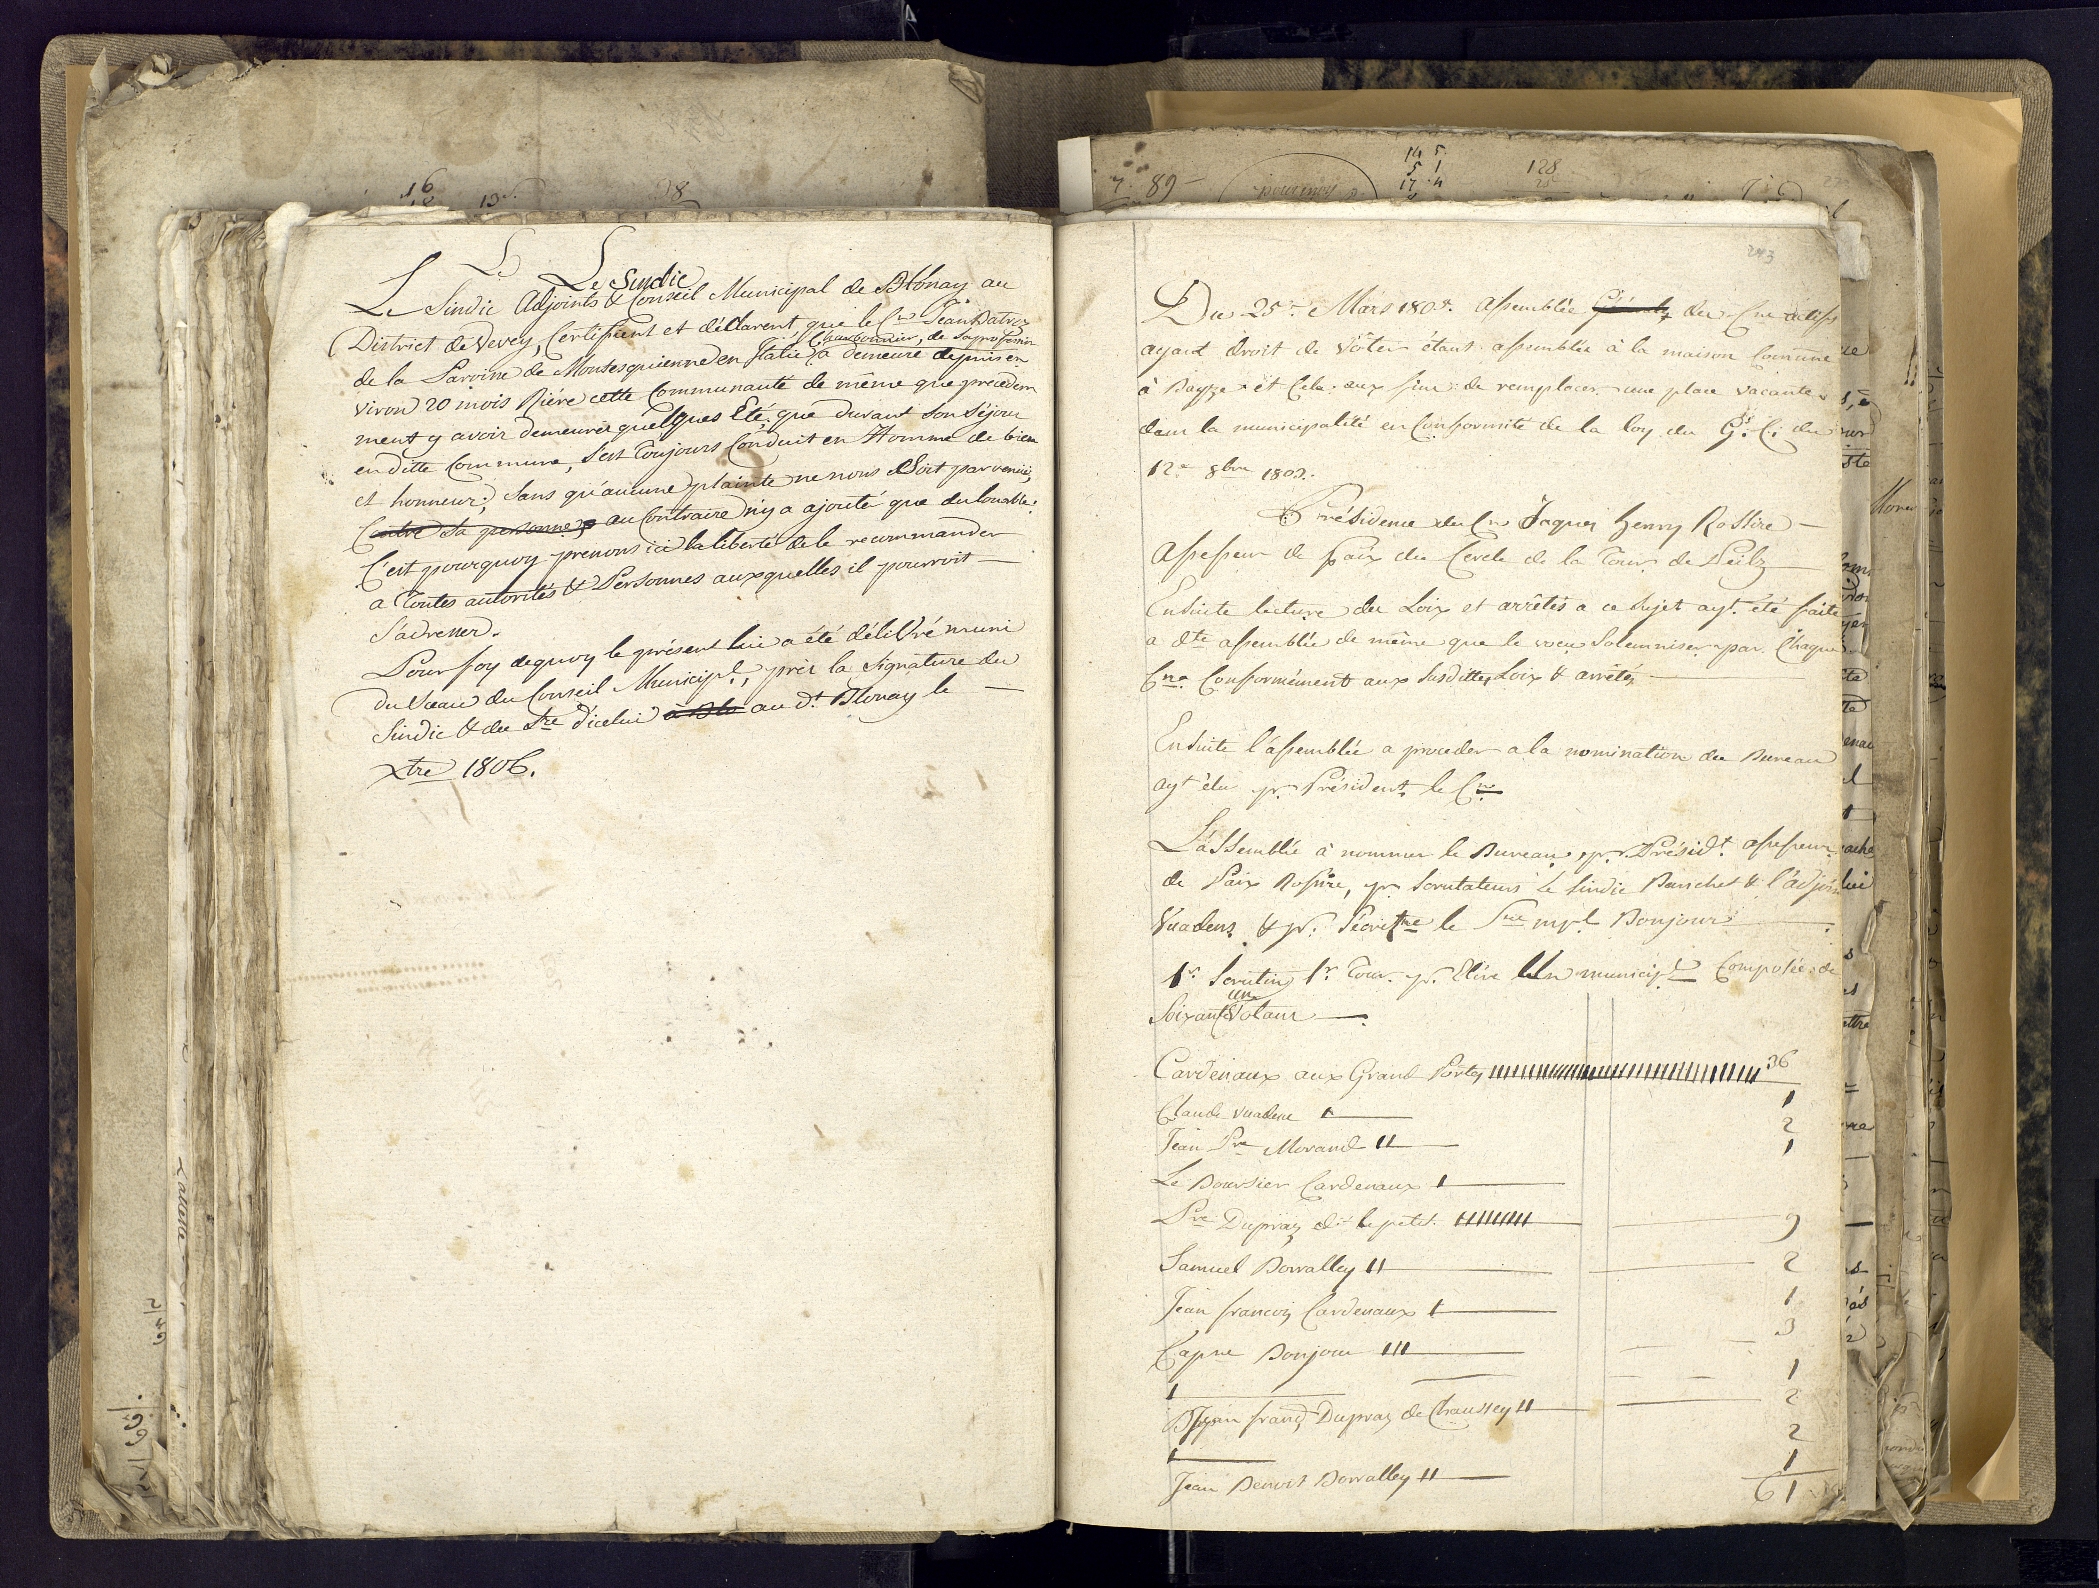 Le Le Sindic
Le Sindic Adjoints & Conseil Municipal de Blonay au
District de Vevey, Certifient et déclarent, que le Cn Jean
Charbonnier, de sa profession
de la Paroine de en Italie, a demeuré depuis en
viron 20 mois Riére cette Communauté de même que précédem
ment y avoir demeurér quelques Eté, que durant son séjour
en ditte Commune, s'est Toujours Conduit en Homme de bien
et honneur; sans qu'aucune plainte ne nous Soit parvenüe,
Contre sa personne, au Contraire n'y a ajouté que du louable.
C'est pourquoy prenons ici la liberté de le recommander
a Toutes autorités & Personnes auxquelles il pourroit —
s'adresser.
Pour foy de quoy le présent lui a été délivré muni
du Sceau du Conseil Municipl, près la signature du
Sindic & du Sre d'icelui à Blo au dt Blonay le —
Xbre 1806.
16
128
7. 89 -
14 5
5 1
17. 4
128
25
243
Du 25e Mars 180 . Assemblée des Cns actifs
ayant droit de Vôter étant assemblée à la maison Commune
à Bayse et Cela aux fins de remplacer une place vacante
dans la municipalité en Conformité de la loy du Gd. C. du
12e 8bre 1803.
Présidence du Cn Jaques Henry Rossire —
Assesseur de Paix du Cercle de la Tour de Peilz
Ensuite lecture des Loix et arrêtés a ce sujet ayt. été faite
a dte assemblée de même que le voeu Solemniser par Chaque
Cne Conformément aux susdittes Loix & arrêtés —
Ensuite l'assemblée a proceder a la nomination du Bureau
ayt élu pr. Président le Cn
L'assemblée à nommer le Bureau, pr. Présidt. assesseur
de Paix Rossire, pr Scrutateurs le Sindic Bonchet & l'adjoint
Vuadens & pr. Sécrétre le Sre mpl Bonjour —
1r. Scrutin 1r. Tour pr. Elire Un municipl Composée de
un
Soixante Votans —
Cardenaux aux Grand Portes 36
Claude Vuadens I — 1
Jean Pre Morand II — 2
Le Boursier Cardenaux I — 1
Pre Dupraz dit le petit — 9
Samuel Borralley II — 2
Jean francois Cardenaux I — 1
Capne Bonjour III — 3
I — 1
Jean frand Dupraz de Chaussey II — 2
2
I — 1
Jean Benoit Borralley II —
61